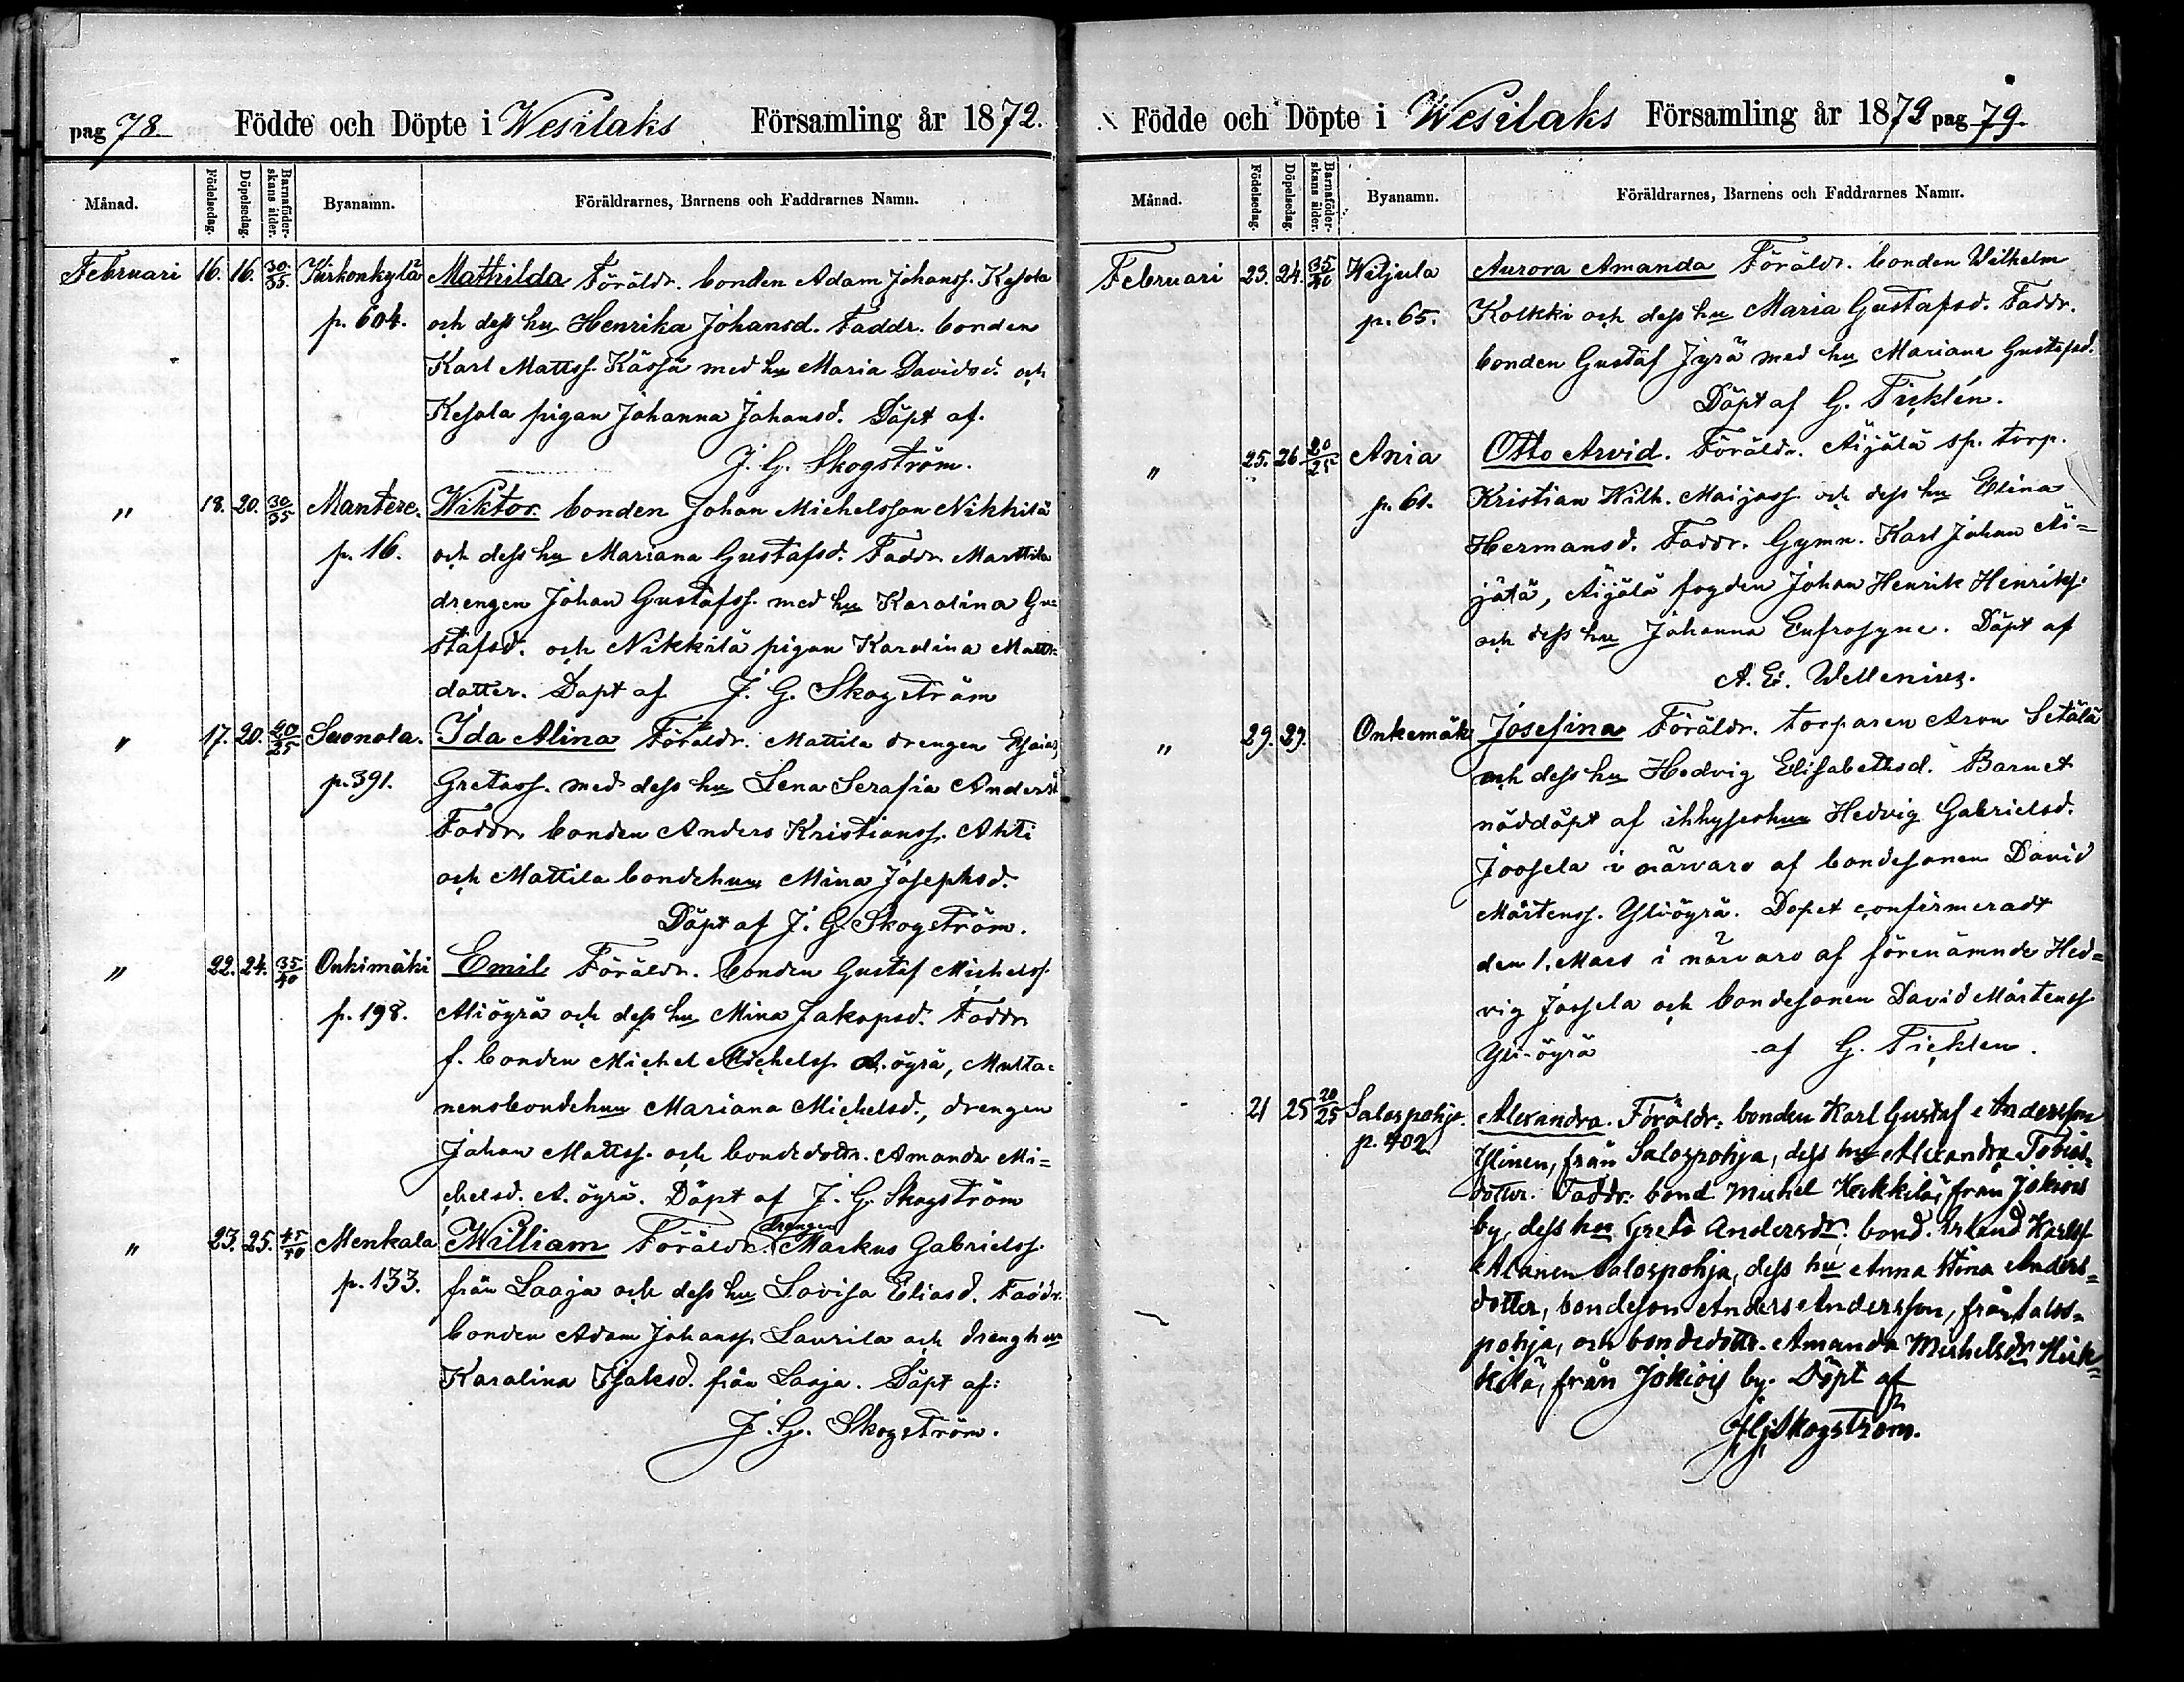 pag 78. Födde och Döpte i Wesilaks Församling år 1872.
Månad. Födelsedag. Döpelsedag. Barnaföderskans ålder. Byanamn. Föräldrarnes, Barnens och Faddrarnes Namn.
Februari 16. 16. 30/35. Kirkonkylä Mathilda Föräldr. bonden Adam Johanss. Kesola
p. 604. och dess hu Henrika Johansd. Faddr. bonden
Karl Mattss. Kässä med hu Maria Davidsd. och
Kesola pigan Johanna Johansd. Döpt af.
J. G. Skogström.
" 18. 20. 30/35 Mantere. Wiktor. bonden Johan Michelsson Nikkilä
p. 16. och dess hu Mariana Gustafsd. Faddr. Marttila
drengen Johan Gustafss. med hu Karolina Gu=
stafsd. och Nikkilä pigan Karolina Matts
dotter. Döpt af J. G. Skogström
" 17. 20. 20/25 Suonola. Ida Alina Föräldr. Mattila drengen Esaias
p. 391. Gretass. med dess hu Lena Serafia Andersd
Faddr. bonden Anders Kristianss. Ahti
och Mattila bondehun Mina Josephsd.
Döpt af J. G. Skogström.
" 22. 24. 35/40 Onkimäki Emil Föräldr. bonden Gustaf Michelss.
p. 198. Aliöyrä och dess hu Mina Jakopsd. Faddr
f. bonden Michel Michelss. A. öyrä, Multa=
nensbondehun Mariana Michelsd., drengen
Johan Mattss. och bondedottr. Amanda Mi=
chelsd. A. öyrä. Döpt af J. G. Skogström
drengen
" 23. 25. 45/40 Menkala William Föräldr. Markus Gabrielss.
p. 133. från Laaja och dess hu Lovisa Eliasd. Faddr.
bonden Adam Johanss. Laurila och drenghun
Karolina Isaksd. från Laaja. Döpt af:
J. G. Skogström.
Födde och Döpte i Wesilaks Församling år 1872 pag 79.
Månad. Födelsedag. Döpelsedag. Barnaföderskans ålder. Byanamn. Föräldrarnes, Barnens och Faddrarnes Namn.
Februari 23. 24. 35/40 Weljula Aurora Amanda Föräldr. bonden Wilhelm
p. 65. Kolkki och dess hu Maria Gustafsd. Faddr.
bonden Gustaf Jyrä med hu Mariana Gustafsd.
Döpt af G. Ticklén.
" 25. 26 20/25 Ania Otto Arvid. Föräldr. Äijälä sp. torp.
p. 61. Kristian Wilh. Maijass. och dess hu Elina
Hermansd. Faddr. Gymn. Karl Johan Äi=
jälä, Äijälä fogden Johan Henrik Henrikss.
och dess hu Johanna Eufrosyne. Döpt af
A. E. Wellenius.
" 29. 29. Onkemäki Josefina Föräldr. torparen Aron Setälä
och dess hu Hedvig Elisabethsd. Barnet
nöddöpt af inhyseshun Hedvig Gabrielsd.
Joosela i närvaro af bondesonen David
Mårtenss. Yli-öyrä. Dopet confirmeradt
den 1. Mars i närvaro af förenämnde Hed=
vig Joosela och bondesonen David Mårtenss.
Yli-öyrä af G. Ticklen.
21 25 20/25 Salospohja. Alexandra. Föräldr: bonden Karl Gustaf Andersson
p. 402 Ylinen, från Salospohja, dess hu Alexandra Tobias-
dotter. Faddr: bond Michel Heikkilä, från Jokiois
by, dess hu Greta Andersdr; bond. Erland Karlss
Alanen Salospohja, dess hu Anna Stina Anders=
dotter, bondeson Anders Andersson, från Salos=
pohja, och bondedottr. Amanda Michelsdr Heik=
kilä, från Jokiois by. Döpt af
JGSkogström.